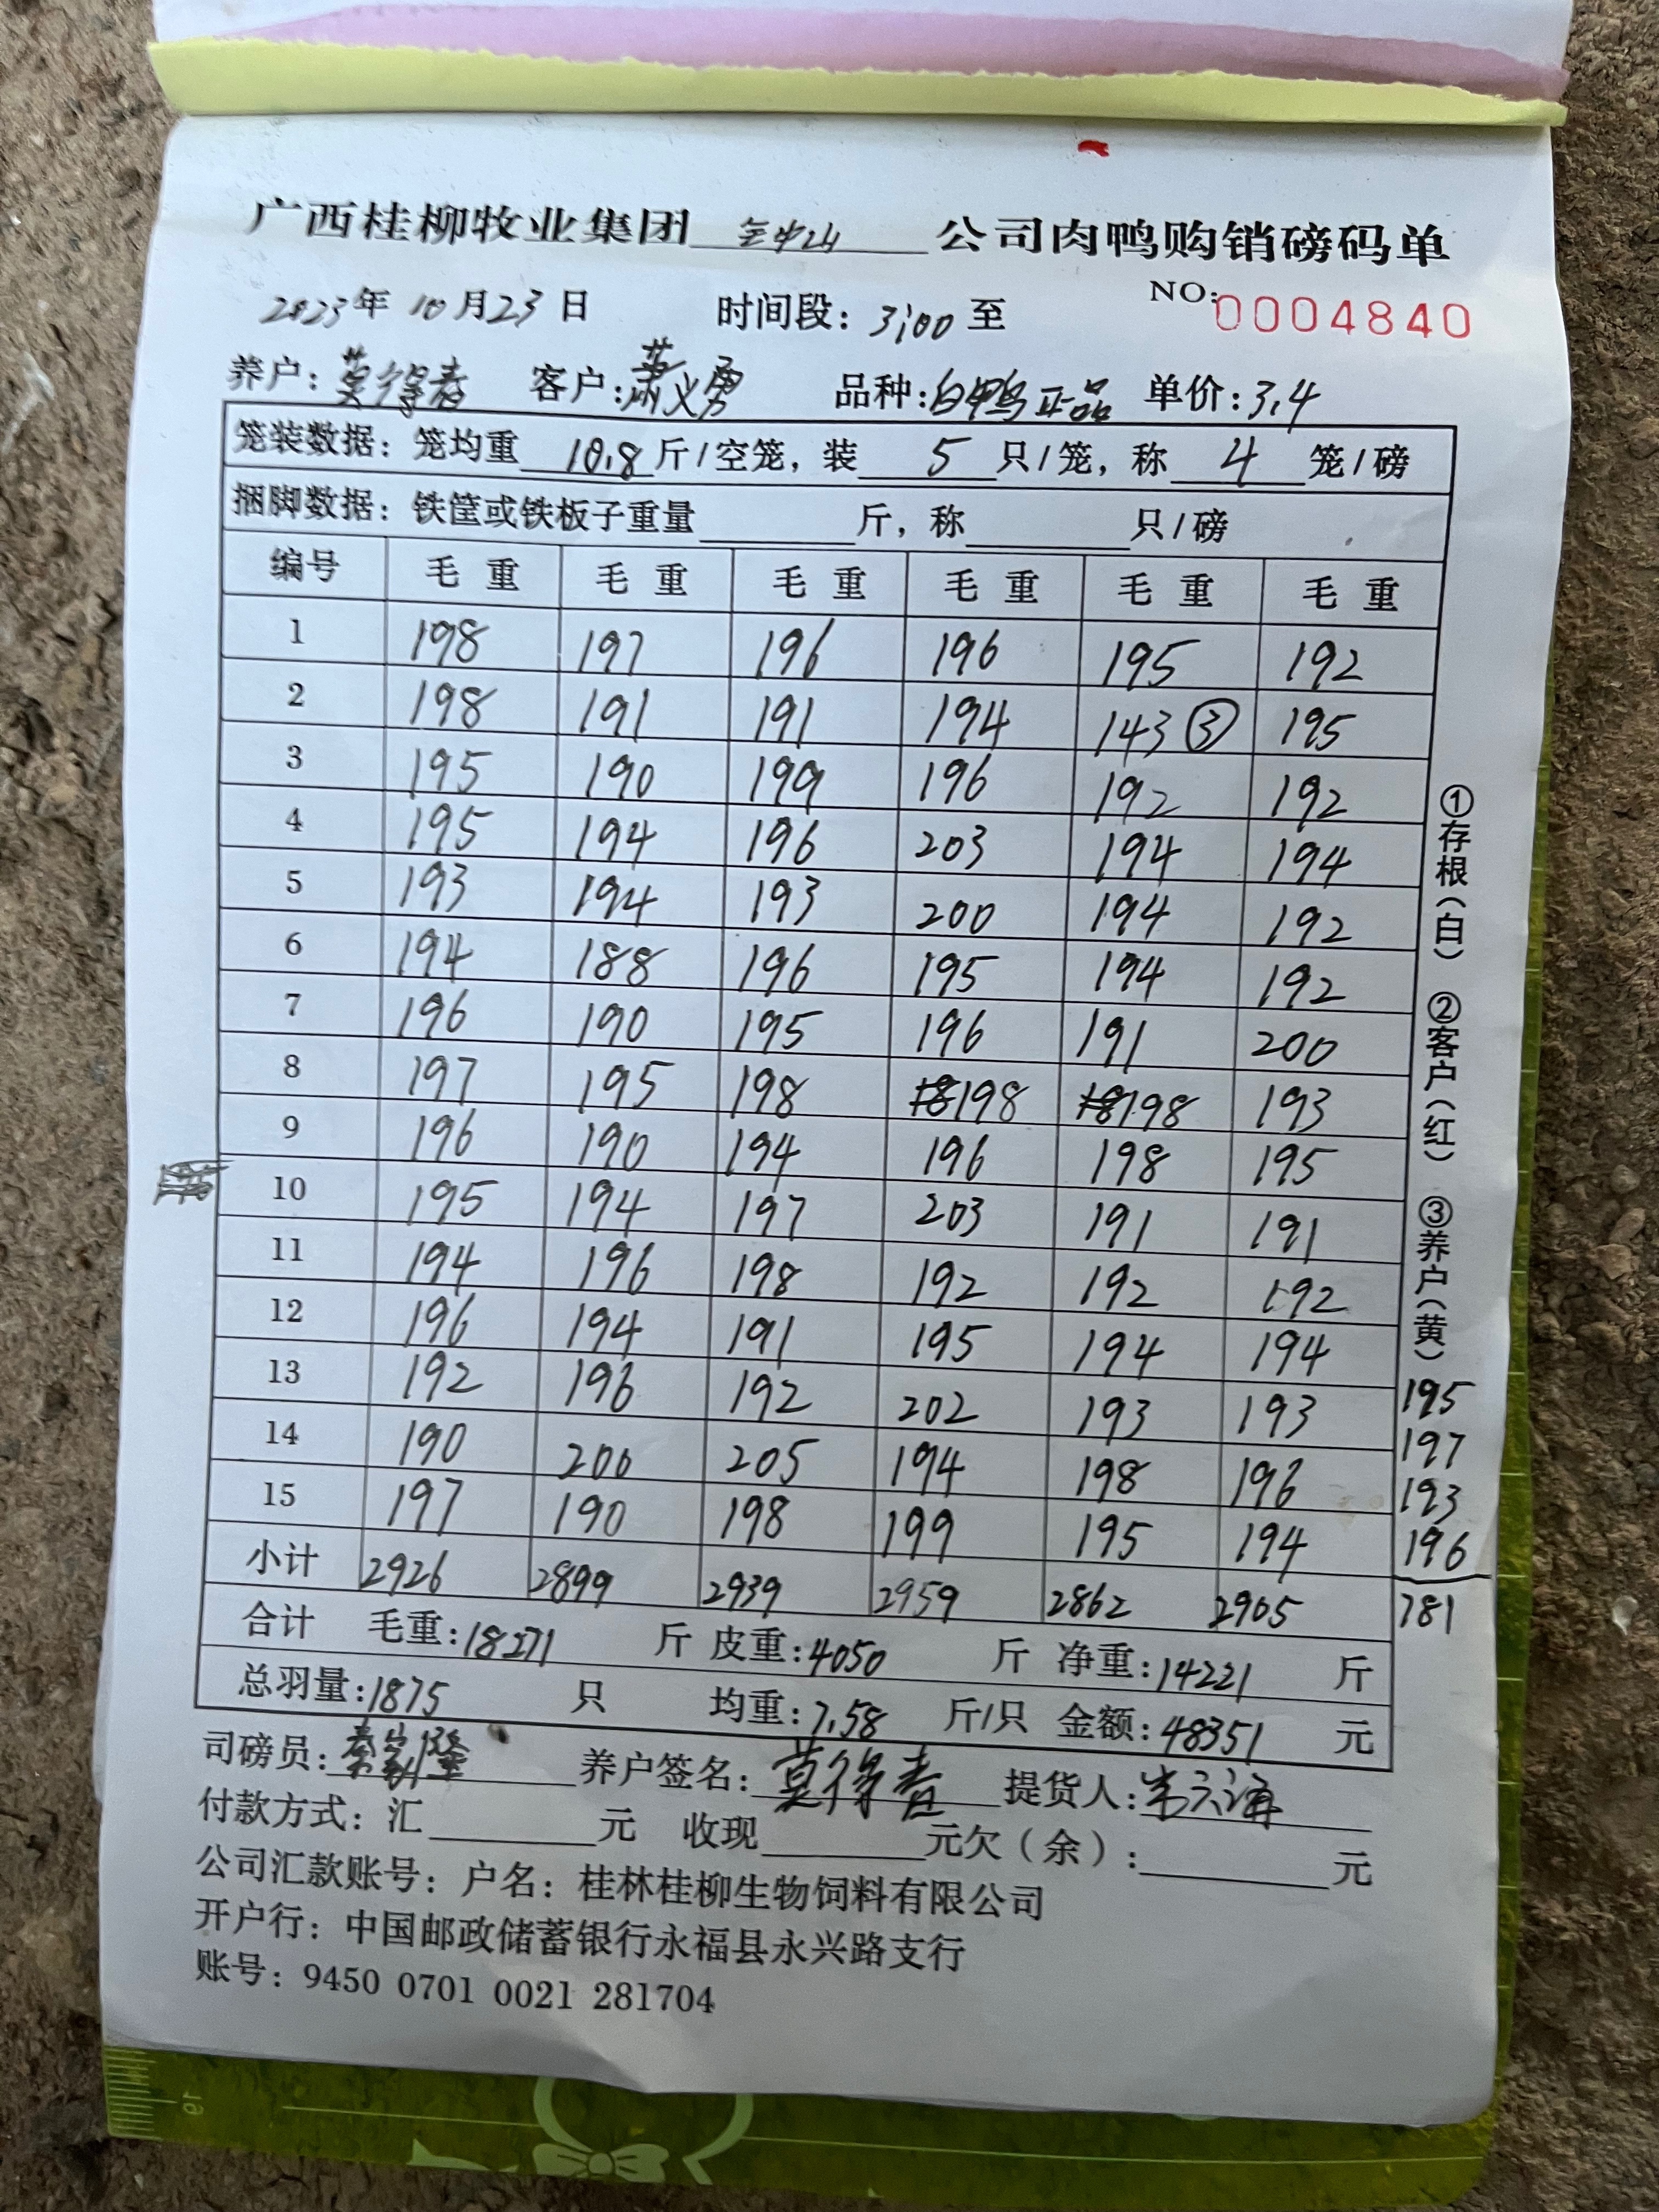 广西桂柳牧业集团 金中山 公司肉鸭购销磅码单
2023年 10月23日 时间段：3:00至 NO:0004840
养户：莫得春 客户：萧义勇 品种：白鸭正品 单价：3.4
笼装数据：笼均重 10.8 斤/空笼，装 5 只/笼，称 4 笼/磅
捆脚数据：铁筐或铁板子重量 斤，称 只/磅
编号 毛重 毛重 毛重 毛重 毛重 毛重
1 198 197 196 196 195 192
2 198 191 191 194 143③ 195
3 195 190 199 196 192 192
4 195 194 196 203 194 194
5 193 194 193 200 194 192
6 194 188 196 195 194 192
7 196 190 195 196 191 200
8 197 195 198 198 198 193
9 196 190 194 196 198 195
10 195 194 197 203 191 191
11 194 196 198 192 192 192
12 196 194 191 195 194 194
13 192 196 192 202 193 193
14 190 200 205 194 198 196
15 197 190 198 199 195 194
小计 2926 2899 2939 2959 2862 2905
合计 毛重：18271 斤 皮重：4050 斤 净重：14221 斤
总羽量：1875 只 均重：7.58 斤/只 金额：48351 元
①存根（白） ②客户（红） ③养户（黄）
195
197
193
196
781
司磅员：秦家隆 养户签名：莫得春 提货人：
付款方式：汇 元 收现 元欠（余）： 元
公司汇款账号：户名：桂林桂柳生物饲料有限公司
开户行：中国邮政储蓄银行永福县永兴路支行
账号：9450 0701 0021 281704